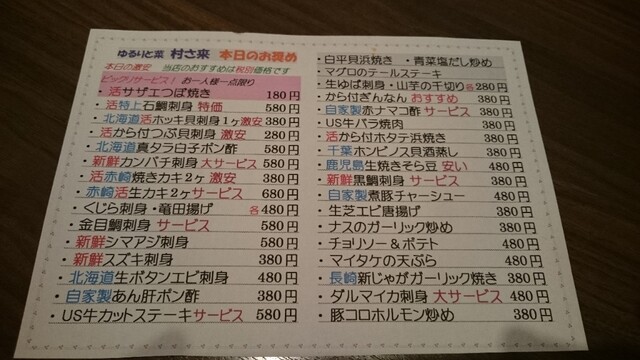 ゆるりと菜 村さ来 本日のお奨め
本日の激安 当店のおすすめは税別価格です
ビックリサービス！ お一人様一点限り
・活サザエつぼ焼き 180円
・活特上石鯛刺身 特価 580円
・北海道活ホッキ貝刺身1ヶ激安 380円
・活から付つぶ貝刺身 激安 280円
・北海道真タラ白子ポン酢 580円
・新鮮カンパチ刺身 大サービス 580円
・活赤崎焼きカキ2ヶ 激安 380円
・赤崎活生カキ2ヶサービス 680円
・くじら刺身・竜田揚げ 各480円
・金目鯛刺身 サービス 580円
・新鮮シマアジ刺身 580円
・新鮮スズキ刺身 380円
・北海道生ボタンエビ刺身 480円
・自家製あん肝ポン酢 380円
・US牛カットステーキサービス 580円
・白平貝浜焼き ・青菜塩だし炒め
・マグロのテールステーキ
・生ゆば刺身・山芋の千切り各280円
・から付ぎんなん おすすめ 380円
・自家製赤ナマコ酢 サービス 380円
・US牛バラ焼肉 380円
・活から付ホタテ浜焼き 380円
・千葉ホンビノス貝酒蒸し 380円
・鹿児島生焼きそら豆 安い 480円
・新鮮黒鯛刺身 サービス 380円
・自家製煮豚チャーシュー 480円
・生芝エビ唐揚げ 380円
・ナスのガーリック炒め 380円
・チョリソー＆ポテト 480円
・マイタケの天ぷら 480円
・長崎新じゃがガーリック焼き 380円
・ダルマイカ刺身 大サービス 480円
・豚コロホルモン炒め 380円